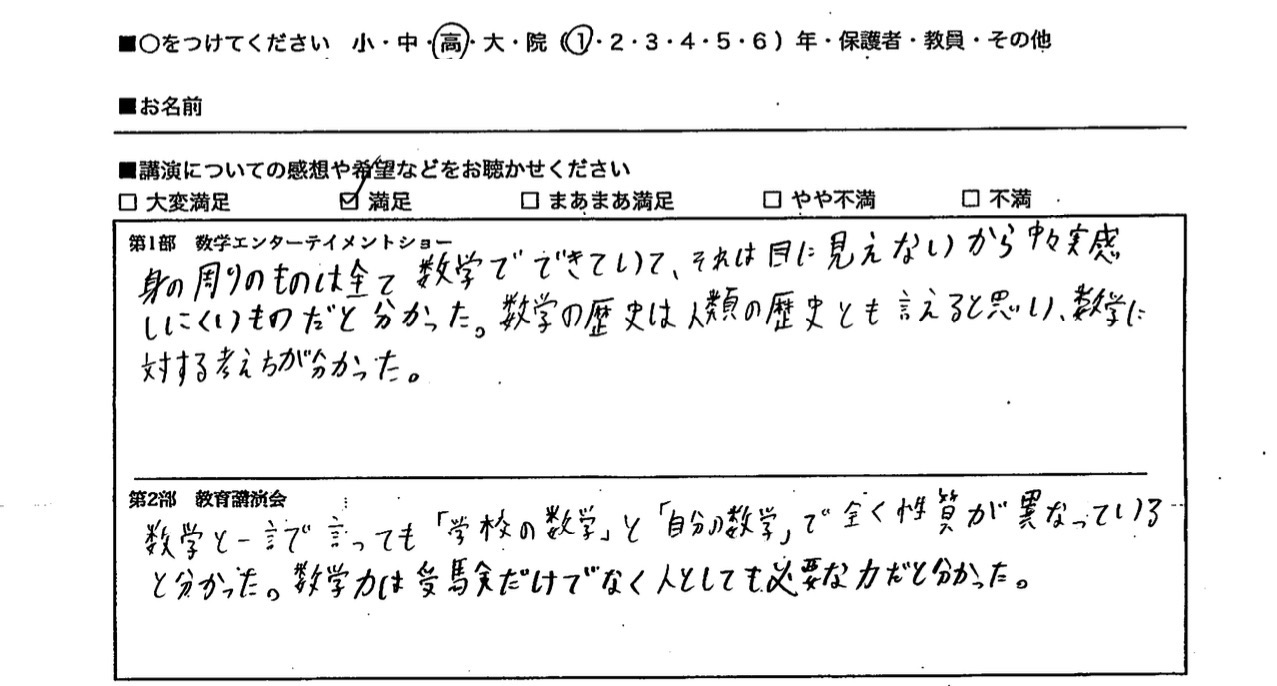 ■○をつけてください 小・中・高・大・院（1・2・3・4・5・6）年・保護者・教員・その他
■お名前
■講演についての感想や希望などをお聴かせください
□ 大変満足 ☑ 満足 □ まあまあ満足 □ やや不満 □ 不満
第1部 数学エンターテイメントショー
身の周りのものは全て数学でできていて、それは目に見えないから中々実感
しにくいものだと分かった。数学の歴史は人類の歴史とも言えると思い、数学に
対する考えちが分かった。
第2部 教育講演会
数学と一言で言っても「学校の数学」と「自分の数学」で全く性質が異なっている
と分かった。数学力は受験だけでなく人としても必要な力だと分かった。